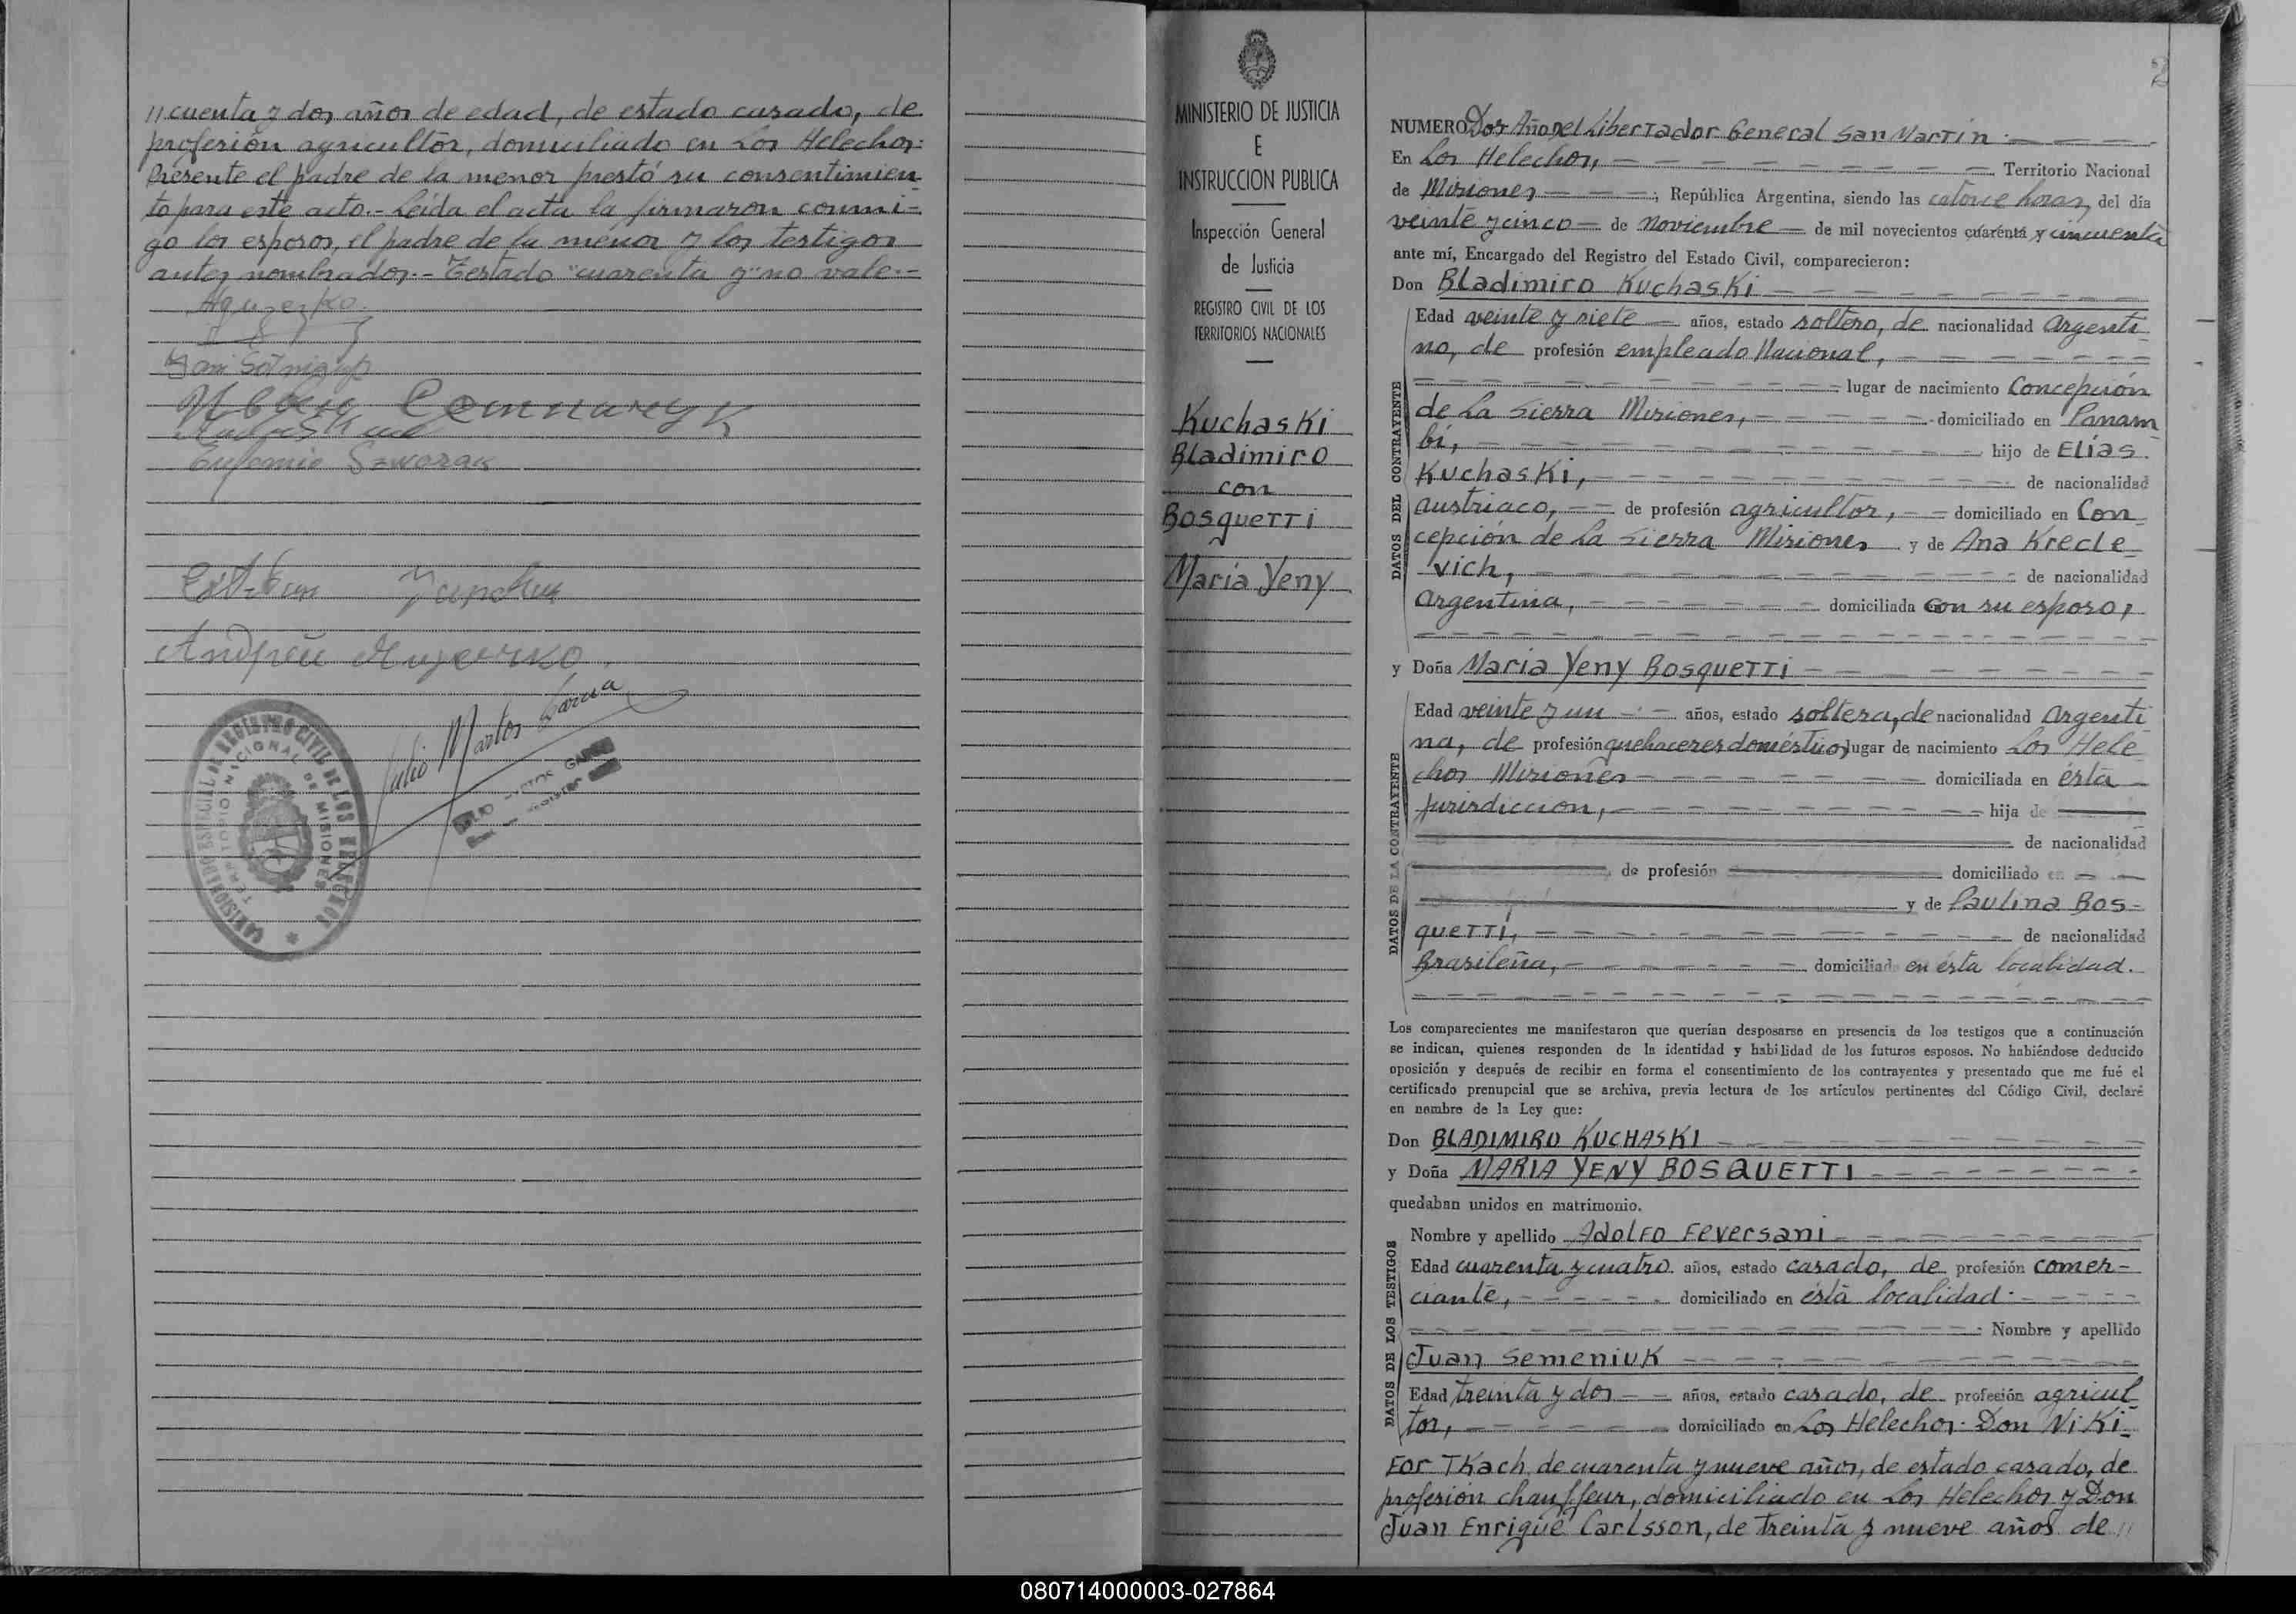 //cuenta y dos años de edad, de estado casado, de
profesión agricultor, domiciliado en Los Helechos:
Presente el padre de la menor prestó su consentimien
to para este acto.- Leída el acta la firmaron conmi-
go los esposos, el padre de la menor y los testigos
antes nombrados.- Testado "cuarenta y" no vale.-
Eufemio Szworak
Esteban
Julio Martos Garcia
COMISION DO ESPECIAL DE REGISTRO CIVIL DE LOS
TERRITORIO NACIONAL DE MISIONES
MINISTERIO DE JUSTICIA
E
INSTRUCCION PUBLICA
Inspección General
de Justicia
REGISTRO CIVIL DE LOS
TERRITORIOS NACIONALES
Kuchaski
Bladimiro
con
Bosquetti
María Yeny
2
NUMERO Dos Año del Libertador General San Martín.
En Los Helechos, Territorio Nacional
de Misiones ; República Argentina, siendo las catorce horas, del día
veinte y cinco de Noviembre de mil novecientos cuarenta y cincuenta
ante mí, Encargado del Registro del Estado Civil, comparecieron:
Don Bladimiro Kuchaski
DATOS DEL CONTRAYENTE
Edad veinte y siete años, estado soltero, de nacionalidad Argenti
no, de profesión empleado Nacional,
lugar de nacimiento Concepción
de La Sierra Misiones, domiciliado en Panam
bí, hijo de Elías
Kuchaski, de nacionalidad
austriaco, de profesión agricultor, domiciliado en Con
cepción de La Sierra Misiones y de Ana Krecle
vich, de nacionalidad
Argentina, domiciliada con su esposo,
y Doña María Yeny Bosquetti
DATOS DE LA CONTRAYENTE
Edad veinte y un años, estado soltera, de nacionalidad Argenti
na, de profesión quehaceres domésticos, lugar de nacimiento Los Hele
chos Misiones domiciliada en ésta
Jurisdiccion, hija de
de nacionalidad
de profesión domiciliado en
y de Paulina Bos-
quetti, de nacionalidad
Brasileña, domiciliad en ésta localidad.
Los comparecientes me manifestaron que querían desposarse en presencia de los testigos que a continuación
se indican, quienes responden de la identidad y habilidad de los futuros esposos. No habiéndose deducido
oposición y después de recibir en forma el consentimiento de los contrayentes y presentado que me fué el
certificado prenupcial que se archiva, previa lectura de los artículos pertinentes del Código Civil, declaré
en nombre de la Ley que:
Don BLADIMIRO KUCHASKI
y Doña MARIA YENY BOSQUETTI
quedaban unidos en matrimonio.
DATOS DE LOS TESTIGOS
Nombre y apellido Adolfo Feversani
Edad cuarenta y cuatro años, estado casado, de profesión comer-
ciante, domiciliado en ésta localidad.
Nombre y apellido
Juan Semeniuk
Edad treinta y dos años, estado casado, de profesión agricul
tor, domiciliado en Los Helechos. Don Niki-
for Tkach de cuarenta y nueve años, de estado casado, de
profesion chauffeur, domiciliado en Los Helechos y Don
Juan Enrique Carlsson, de treinta y nueve años de //
080714000003-027864